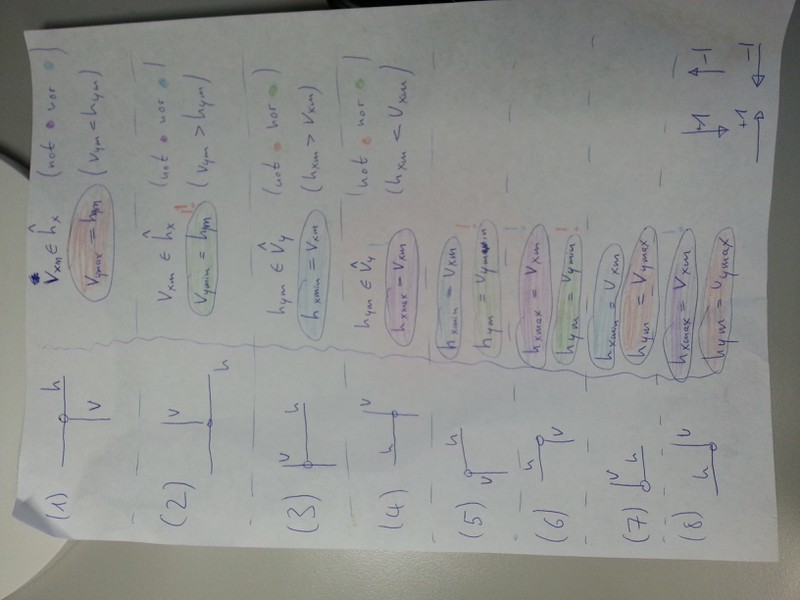 (1) h v v_xm ∈ ĥ_x (not • nor •)
v_ymax = h_ym (v_ym < h_ym)
(2) v h v_xm ∈ ĥ_x (not • nor •)
v_ymin = h_ym !! (v_ym > h_ym)
(3) v h h_ym ∈ v̂_y (not • nor •)
h_xmin = v_xm (h_xm > v_xm)
(4) h v h_ym ∈ v̂_y (not • nor •)
h_xmax = v_xm (h_xm < v_xm)
(5) h v h_xmin = v_xm
h_ym = v_ymin !
(6) h v h_xmax = v_xm !
h_ym = v_ymin !
(7) v h h_xmin = v_xm
h_ym = v_ymax
(8) h v h_xmax = v_xm !
h_ym = v_ymax
+1 -1
+1 -1